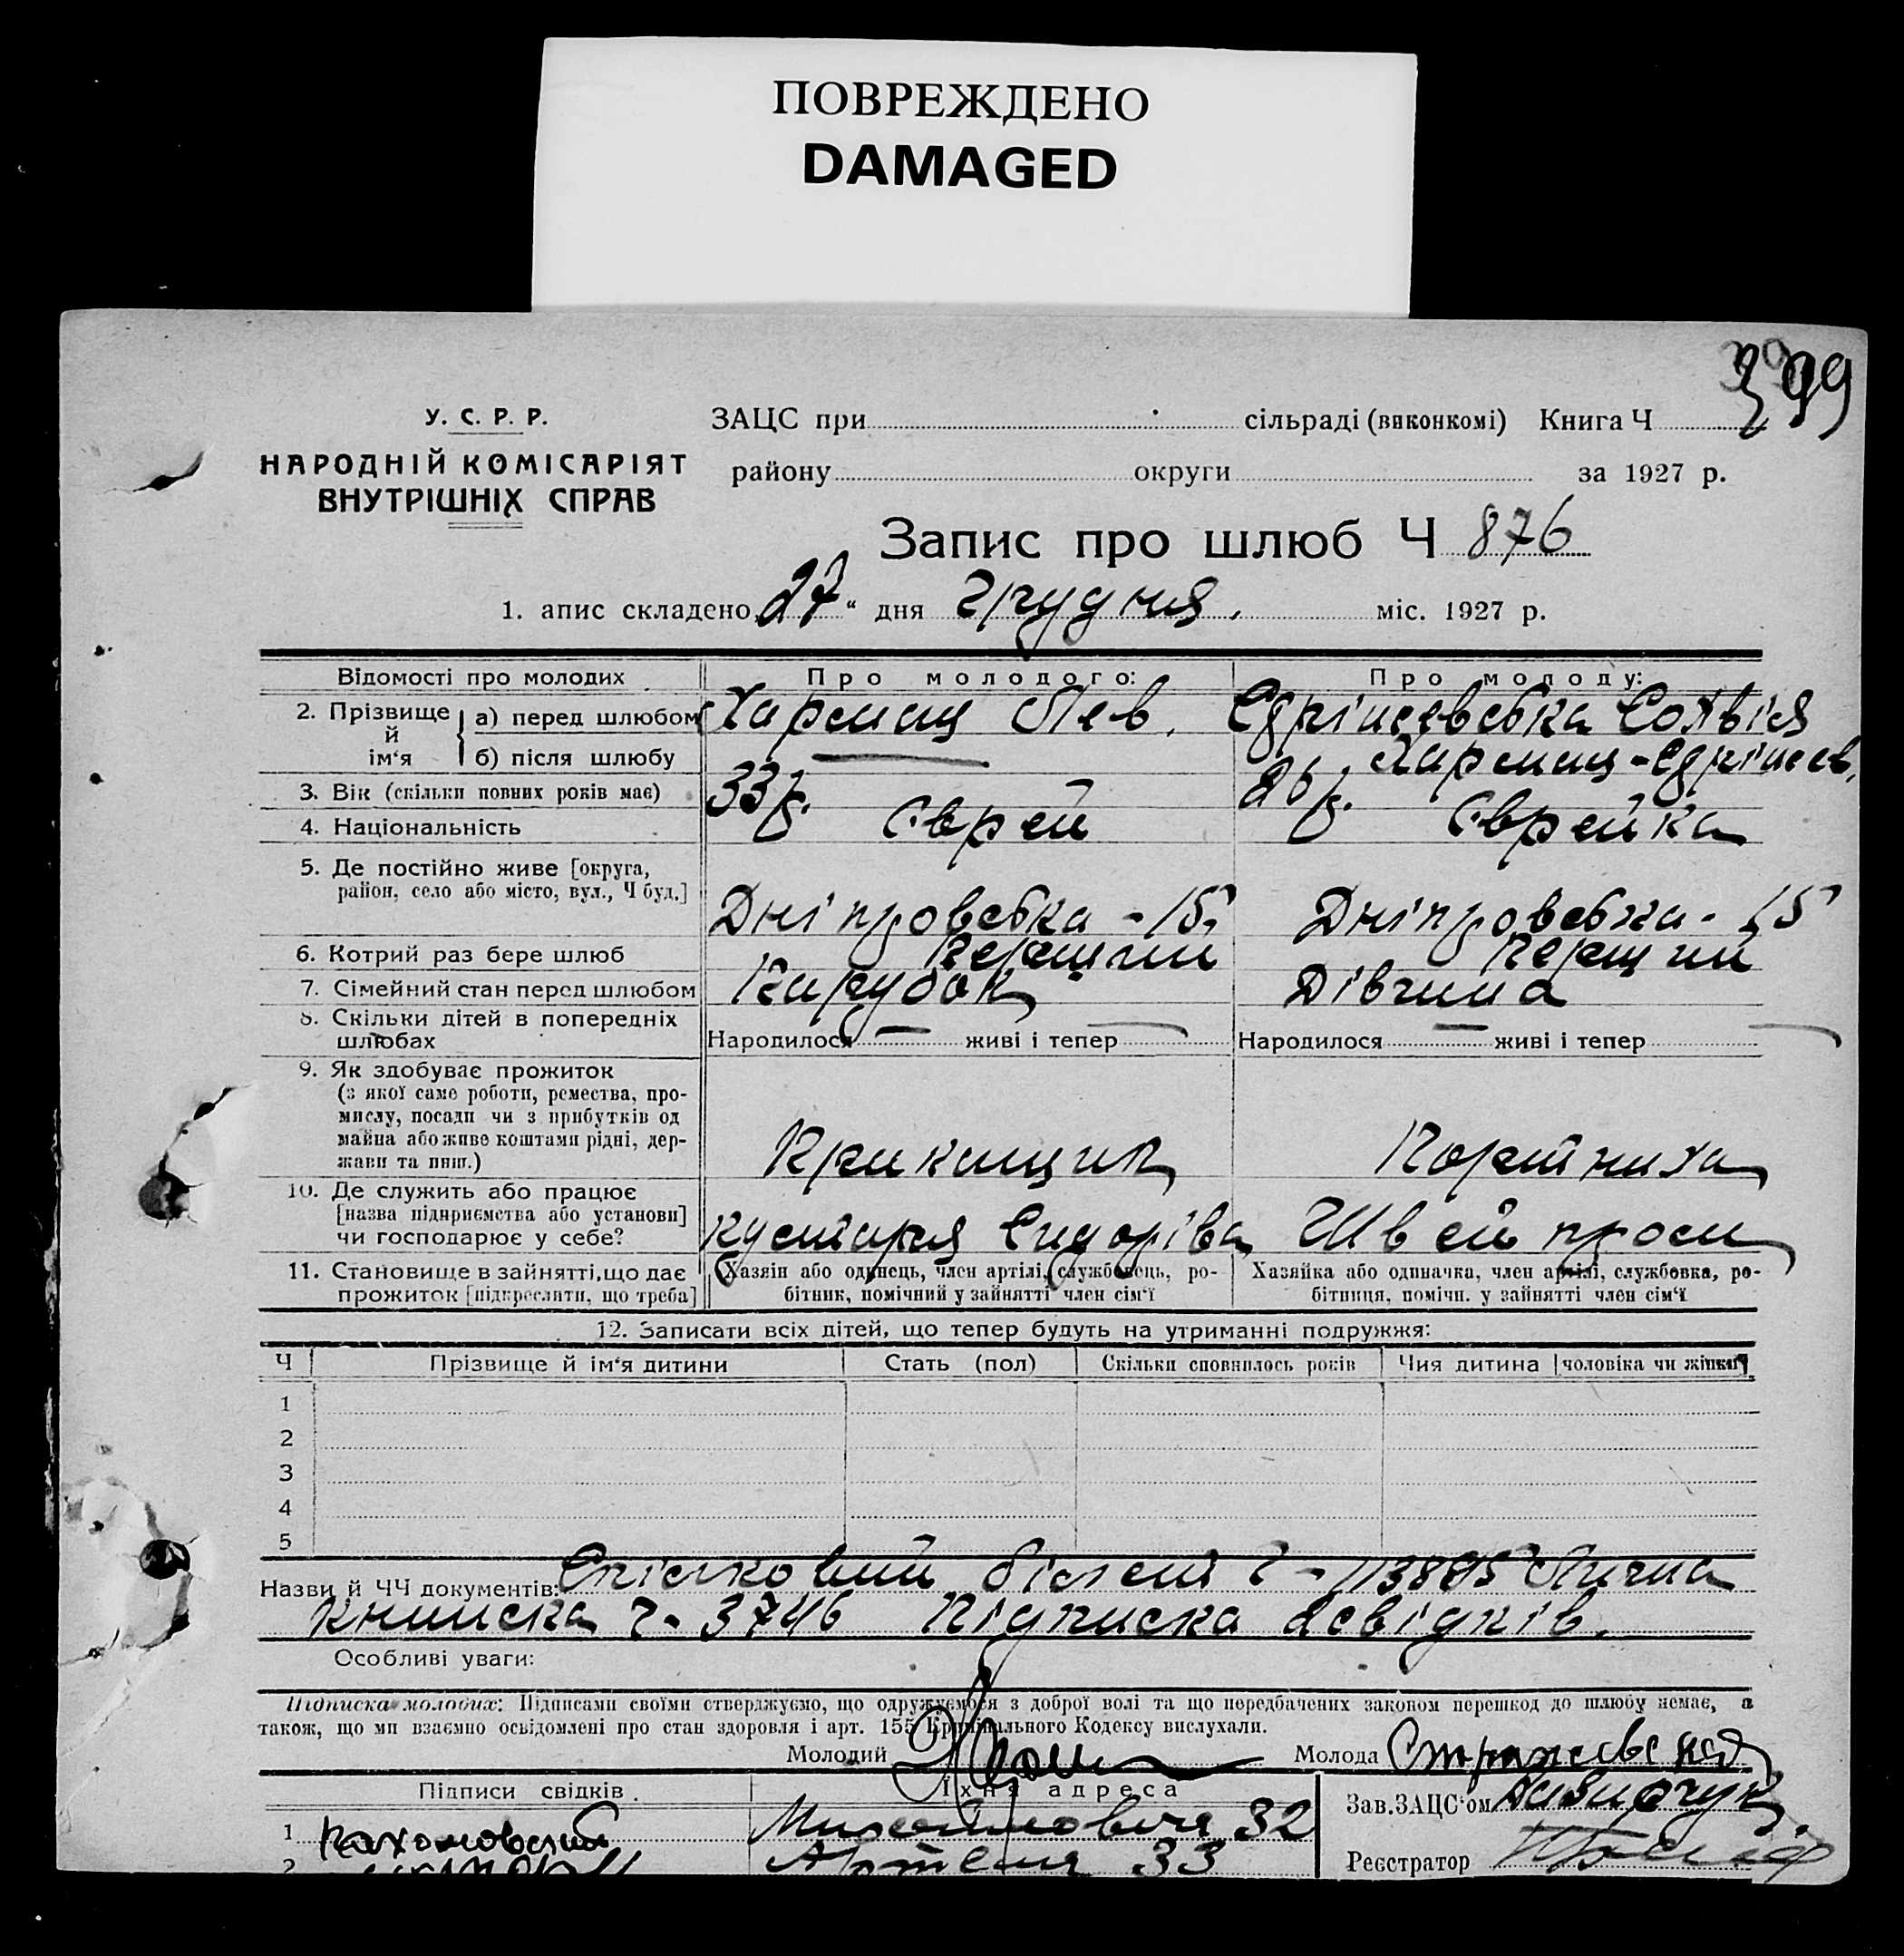 ПОВРЕЖДЕНО
DAMAGED
399
У. С. Р. Р.
НАРОДНІЙ КОМІСАРІЯТ
ВНУТРІШНІХ СПРАВ
ЗАЦС при сільраді (виконкомі) Книга Ч
району округи за 1927 р.
Запис про шлюб Ч 876
1. апис складено „27“ дня грудня міс. 1927 р.
Відомості про молодих Про молодого: Про молоду:
2. Прізвище й ім‘я
а) перед шлюбом Лев.
б) після шлюбу
3. Вік (скільки повних років має) 33 р. 26 р.
4. Національність Єврей Єврейка
5. Де постійно живе [округа,
район, село або місто, вул., Ч буд.]
Дніпровська - 15 Дніпровська - 15
6. Котрий раз бере шлюб Перший Перший
7. Сімейний стан перед шлюбом Парубок Дівчина
8. Скільки дітей в попередніх
шлюбах
Народилося — живі і тепер — Народилося — живі і тепер —
9. Як здобуває прожиток
(з якої саме роботи, ремества, про-
мислу, посади чи з прибутків од
майна або живе коштами рідні, дер-
жави та инш.)
Прикащик
10. Де служить або працює
[назва підприємства або установи]
чи господарює у себе?
кустаря Швейпром
11. Становище в зайнятті, що дає
прожиток [підкреслити, що треба]
Хазяін або одинець, член артілі, службовець, ро-
бітник, помічний у зайнятті член сім‘ї
Хазяйка або одиначка, член артілі, службовка, ро-
бітниця, помічн. у зайнятті член сім‘ї
12. Записати всіх дітей, що тепер будуть на утриманні подружжя:
Ч Прізвище й ім‘я дитини Стать (пол) Скільки сповнилось років Чия дитина [чоловіка чи жінки]
1
2
3
4
5
Назви й ЧЧ документів: Спілковий білет ч - Лична
книжка ч - 3746 Підписка свідків.
Особливі уваги:
Підписка молодих: Підписами своїми стверджуємо, що одружуємося з доброї волі та що передбачених законом перешкод до шлюбу немає, а
також, що ми взаємно освідомлені про стан здоровля і арт. 155 Крмінального Кодексу вислухали.
Молодий Молода
Підписи свідків. Їхня адреса Зав. ЗАЦС‘ом
1 32
2 Артема 33 Реєстратор